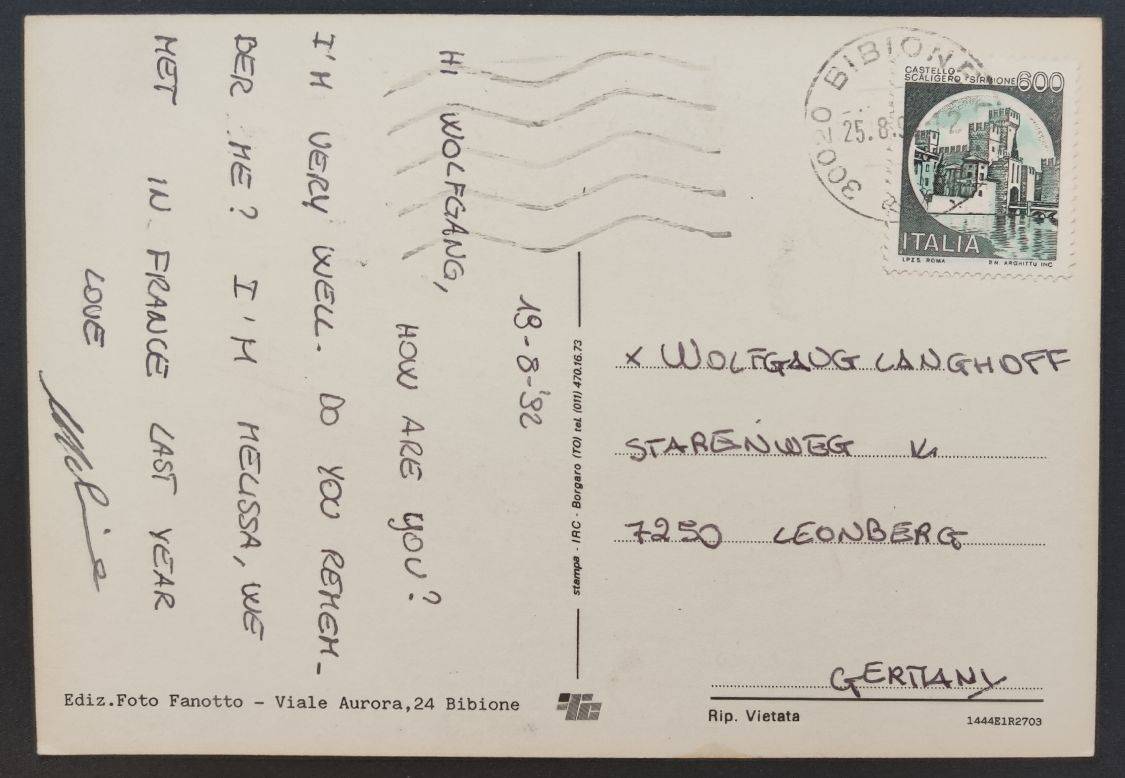 19-8-'92
HI WOLFGANG,
HOW ARE YOU?
I'M VERY WELL. DO YOU REMEM-
BER ME? I'M MELISSA, WE
MET IN FRANCE LAST YEAR
LOVE
30020 BIBIONE
25.8.9
CASTELLO
SCALIGERO - SIRMIONE 600
ITALIA
I.P.Z.S. ROMA
INC.
x WOLFGANG LANGHOFF
STARENWEG
7250 LEONBERG
GERMANY
stampa - IRC - Borgaro (TO) tel. (011) 470.16.73
Ediz.Foto Fanotto - Viale Aurora,24 Bibione
Rip. Vietata
1444E1R2703